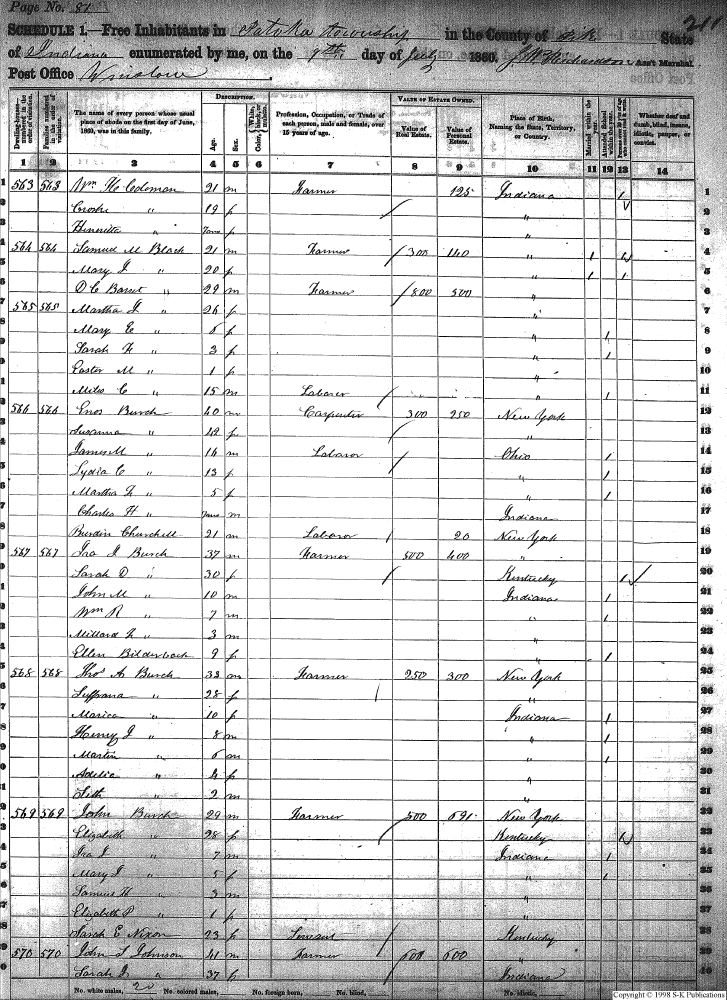 Page No. 81
SCHEDULE 1.—Free Inhabitants in Patoka Township in the County of Pike State
of Indiana enumerated by me, on the 9th day of July 1860. J. W. Richardson Ass't Marshal.
Post Office Winslow
Dwelling-houses—numbered in the order of visitation.
Families numbered in the order of visitation.
The name of every person whose usual place of abode on the first day of June, 1860, was in this family.
DESCRIPTION.
Age.
Sex.
Profession, Occupation, or Trade of each person, male and female, over 15 years of age.
VALUE OF ESTATE OWNED.
Value of Real Estate.
Value of Personal Estate.
Place of Birth, Naming the State, Territory, or Country.
Married within the year.
Attended School within the year.
Whether deaf and dumb, blind, insane, idiotic, pauper, or convict.
1 2 3 4 5 6 7 8 9 10 11 12 13 14
1 563 563 Wm H Coleman 21 m Farmer 125 Indiana 1
" 19 f "
Henrietta " f "
564 564 Samuel M Black 21 m Farmer 300 140 " 1
Mary J " 20 f " 1
O C Barret " 29 m Farmer 800 500 "
565 565 Martha J " 26 f "
Mary E " 6 f " 1
Sarah F " 3 f " 1
Easter M " 1 f "
Miles C " 15 m Laborer " 1
566 566 Enos Burch 40 m Carpenter 300 250 New York
Susanna " 42 f "
James M " 14 m Laborer Ohio 1
Lydia C " 13 f " 1
Martha F " 5 f " 1
Charles H " m Indiana
Burdin Churchill 21 m Laborer 20 New York
567 567 Ira J Burch 37 m Farmer 500 400 "
Sarah D " 30 f Kentucky 1
John M " 10 m Indiana 1
Wm R " 7 m " 1
Millard F " 3 m "
Ellen Bilderback 9 f " 1
568 568 Thos A Burch 33 m Farmer 250 300 New York
" 28 f "
" 10 f Indiana 1
Henry J " 8 m " 1
Martin " 6 m "
Adelia " 4 f "
Seth " 2 m "
569 569 John Burch 29 m Farmer 500 691 New York
Elizabeth " 28 f Kentucky
Ira J " 7 m Indiana 1
Mary J " 5 f " 1
Samuel H " 3 m "
Elizabeth P " 1 f "
Sarah E Nixon 23 f Servant Kentucky
570 570 John S Johnson 41 m Farmer 600 600 "
Sarah J " 37 f Indiana
No. white males, 20 No. colored males, No. foreign born, No. blind, No. idiotic,
Copyright © 1998 S-K Publications